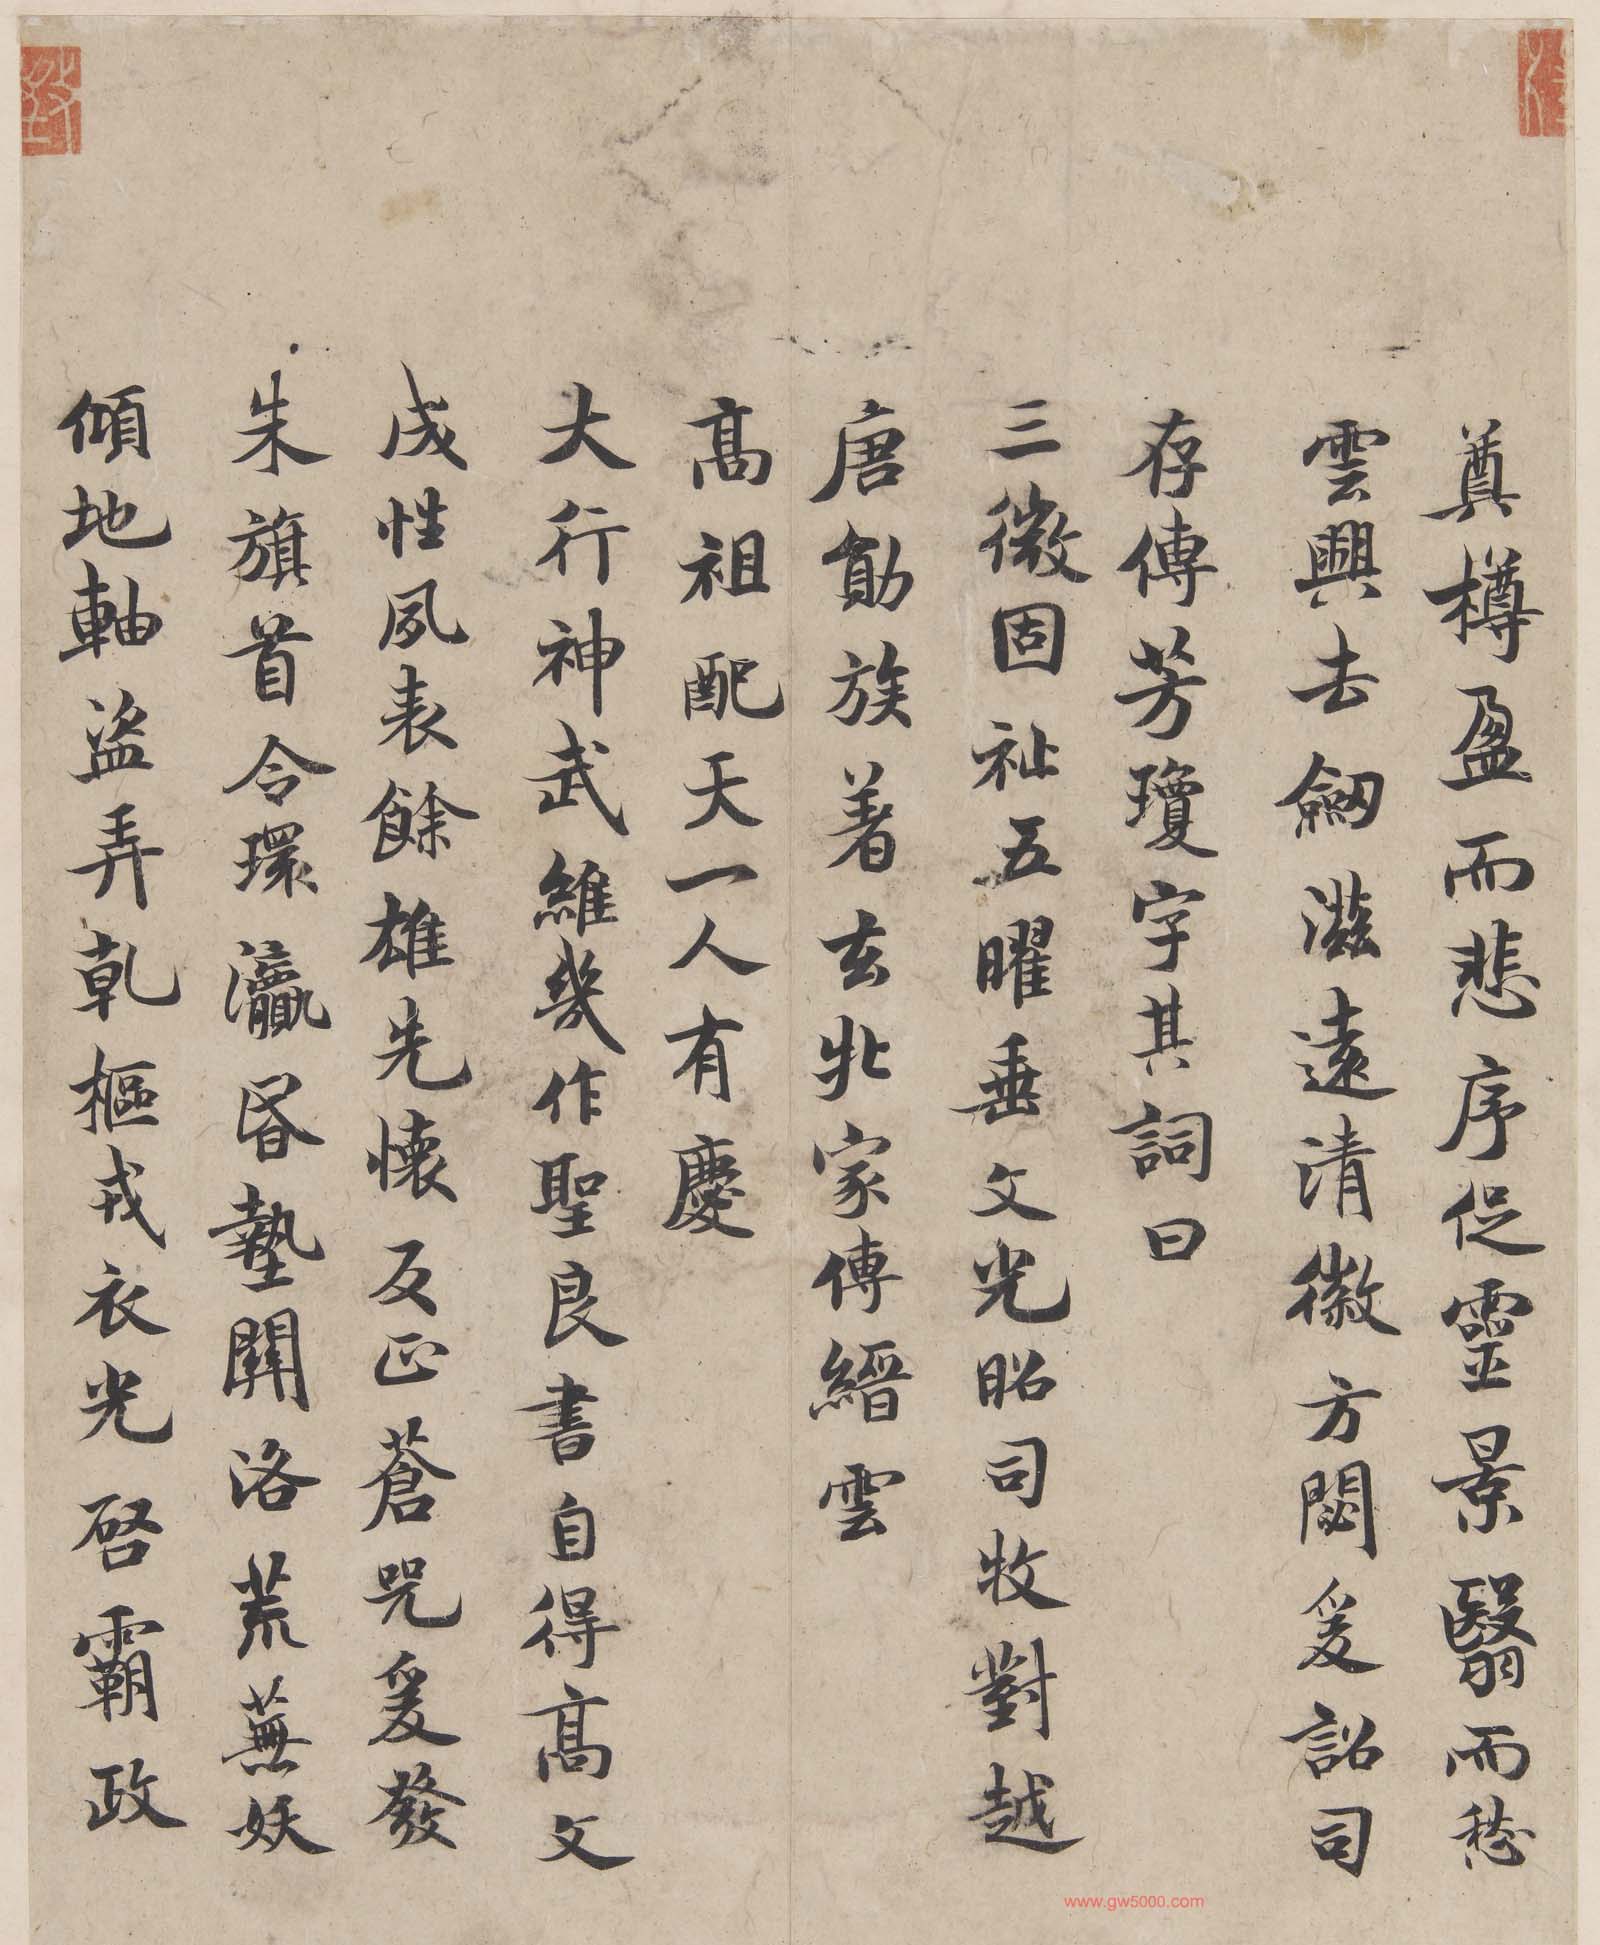 奠樽盈而悲序促靈景翳而愁
雲興去劔滋遠清徽方閟爰詔司
存傳芳瓊字其詞曰
三微固祉五曜垂文光昭司牧對越
唐勛族著玄牝家傳縉雲
髙祖配天一人有慶
大行神武維幾作聖良書自得髙文
成性夙表餘雄先懷反正蒼兕爰發
朱旗首令環瀛昬墊關洛荒蕪妖
傾地軸盜弄乾樞戎衣光啓霸政
www.gw5000.com